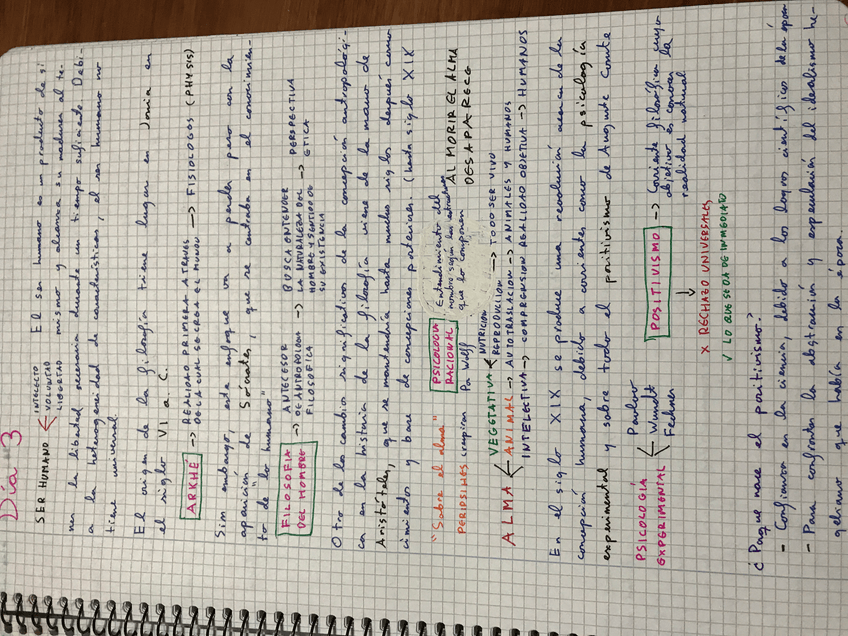 Día 3
SER HUMANO INTELECTO VOLUNTAD LIBERTAD
El ser humano es un producto de si
mismo y alcanza su madurez al te-
ner la libertad necesaria durante un tiempo suficiente. Debi-
a la heterogeneidad de características, el ser humano no
tiene universal.
El origen de la filosofía tiene lugar en Jonia en
el siglo VI a. C.
ARKHÉ → REALIDAD PRIMERA A TRAVES DE LA CUAL SE CREA EL MUNDO → FISIOLOGOS (PHYSIS)
Sim embargo, este enfoque va a perder peso con la
aparición de Sócrates, que se centraba en el conocimien-
to de lo humano"
FILOSOFIA DEL HOMBRE → ANTECESOR DE ANTROPOLOGIA FILOSOFICA → BUSCA ENTENDER LA NATURALEZA DEL HOMBRE Y SENTIDO DE SU EXISTENCIA → PERSPECTIVA ETICA
Otro de los cambio significativos de la concepción antropológi-
ca en la historia de la filosofía viene de la mano de
Aristóteles, que se mantendría hasta mucho siglos después como
cimientos y base de concepciones posteriores. (hasta siglo XIX
"Sobre el alma"
PERIPSIHES
PSICOLOGIA RACIONAL
Entendimiento del
hombre según las estructuras
que lo componen
Por Wolff
AL MORIR EL ALMA
DESAPARECE
ALMA
VEGETATIVA NUTRICION REPRODUCCION → TODO SER VIVO
ANIMAL → AUTOTRASLACION → ANIMALES Y HUMANOS
INTELECTIVA → COMPRENSION REALIDAD OBJETIVA → HUMANOS
En el siglo XIX se produce una revolución acerca de la
concepción humana, debido a corrientes como la psicología
experimental y sobre todo el positivismo de Auguste Comte
PSICOLOGÍA EXPERIMENTAL
Pavlov
Wundt
Fechner
POSITIVISMO → Corriente filosófica cuyo
objetivo es conocer la
realidad natural
x RECHAZO UNIVERSALES
√ LO QUE SE DA DE INMEDIATO
¿Porque nace el positivismo?
- Confianza en la ciencia, debido a los logros científicos de la época
- Para confrontar la abstracción y especulación del idealismo he-
geliano que había en la época.